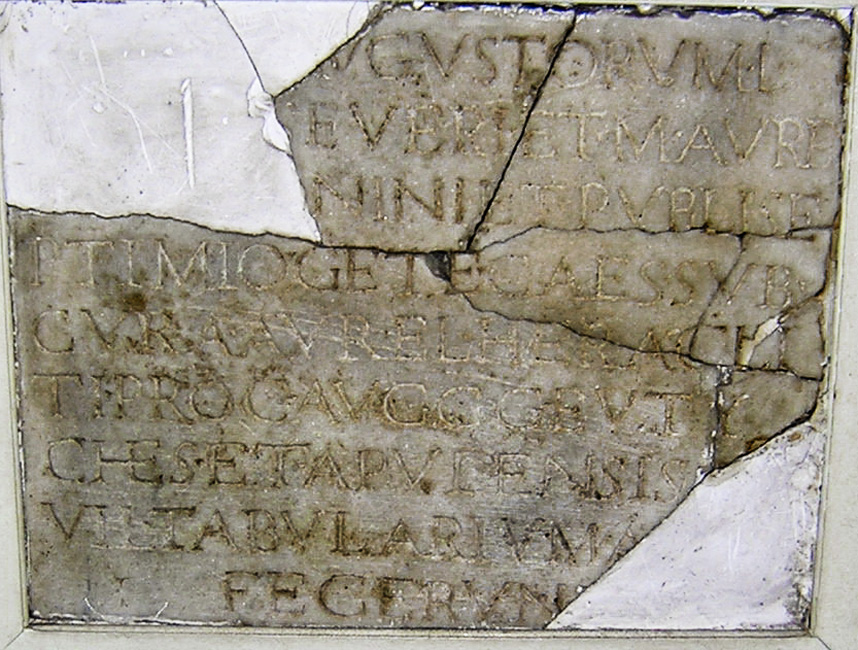 VGVSTORVM·L
EVERI ET·M·AVRE
NINI ET PVBLI SE
PTIMIO GETE CAESS SVB·
CVRA AVREL HERACLI
TI PROC AVGGG EVTY
CHES ET APVLENSIS
VIL TABVLARIVM A
FECERVN